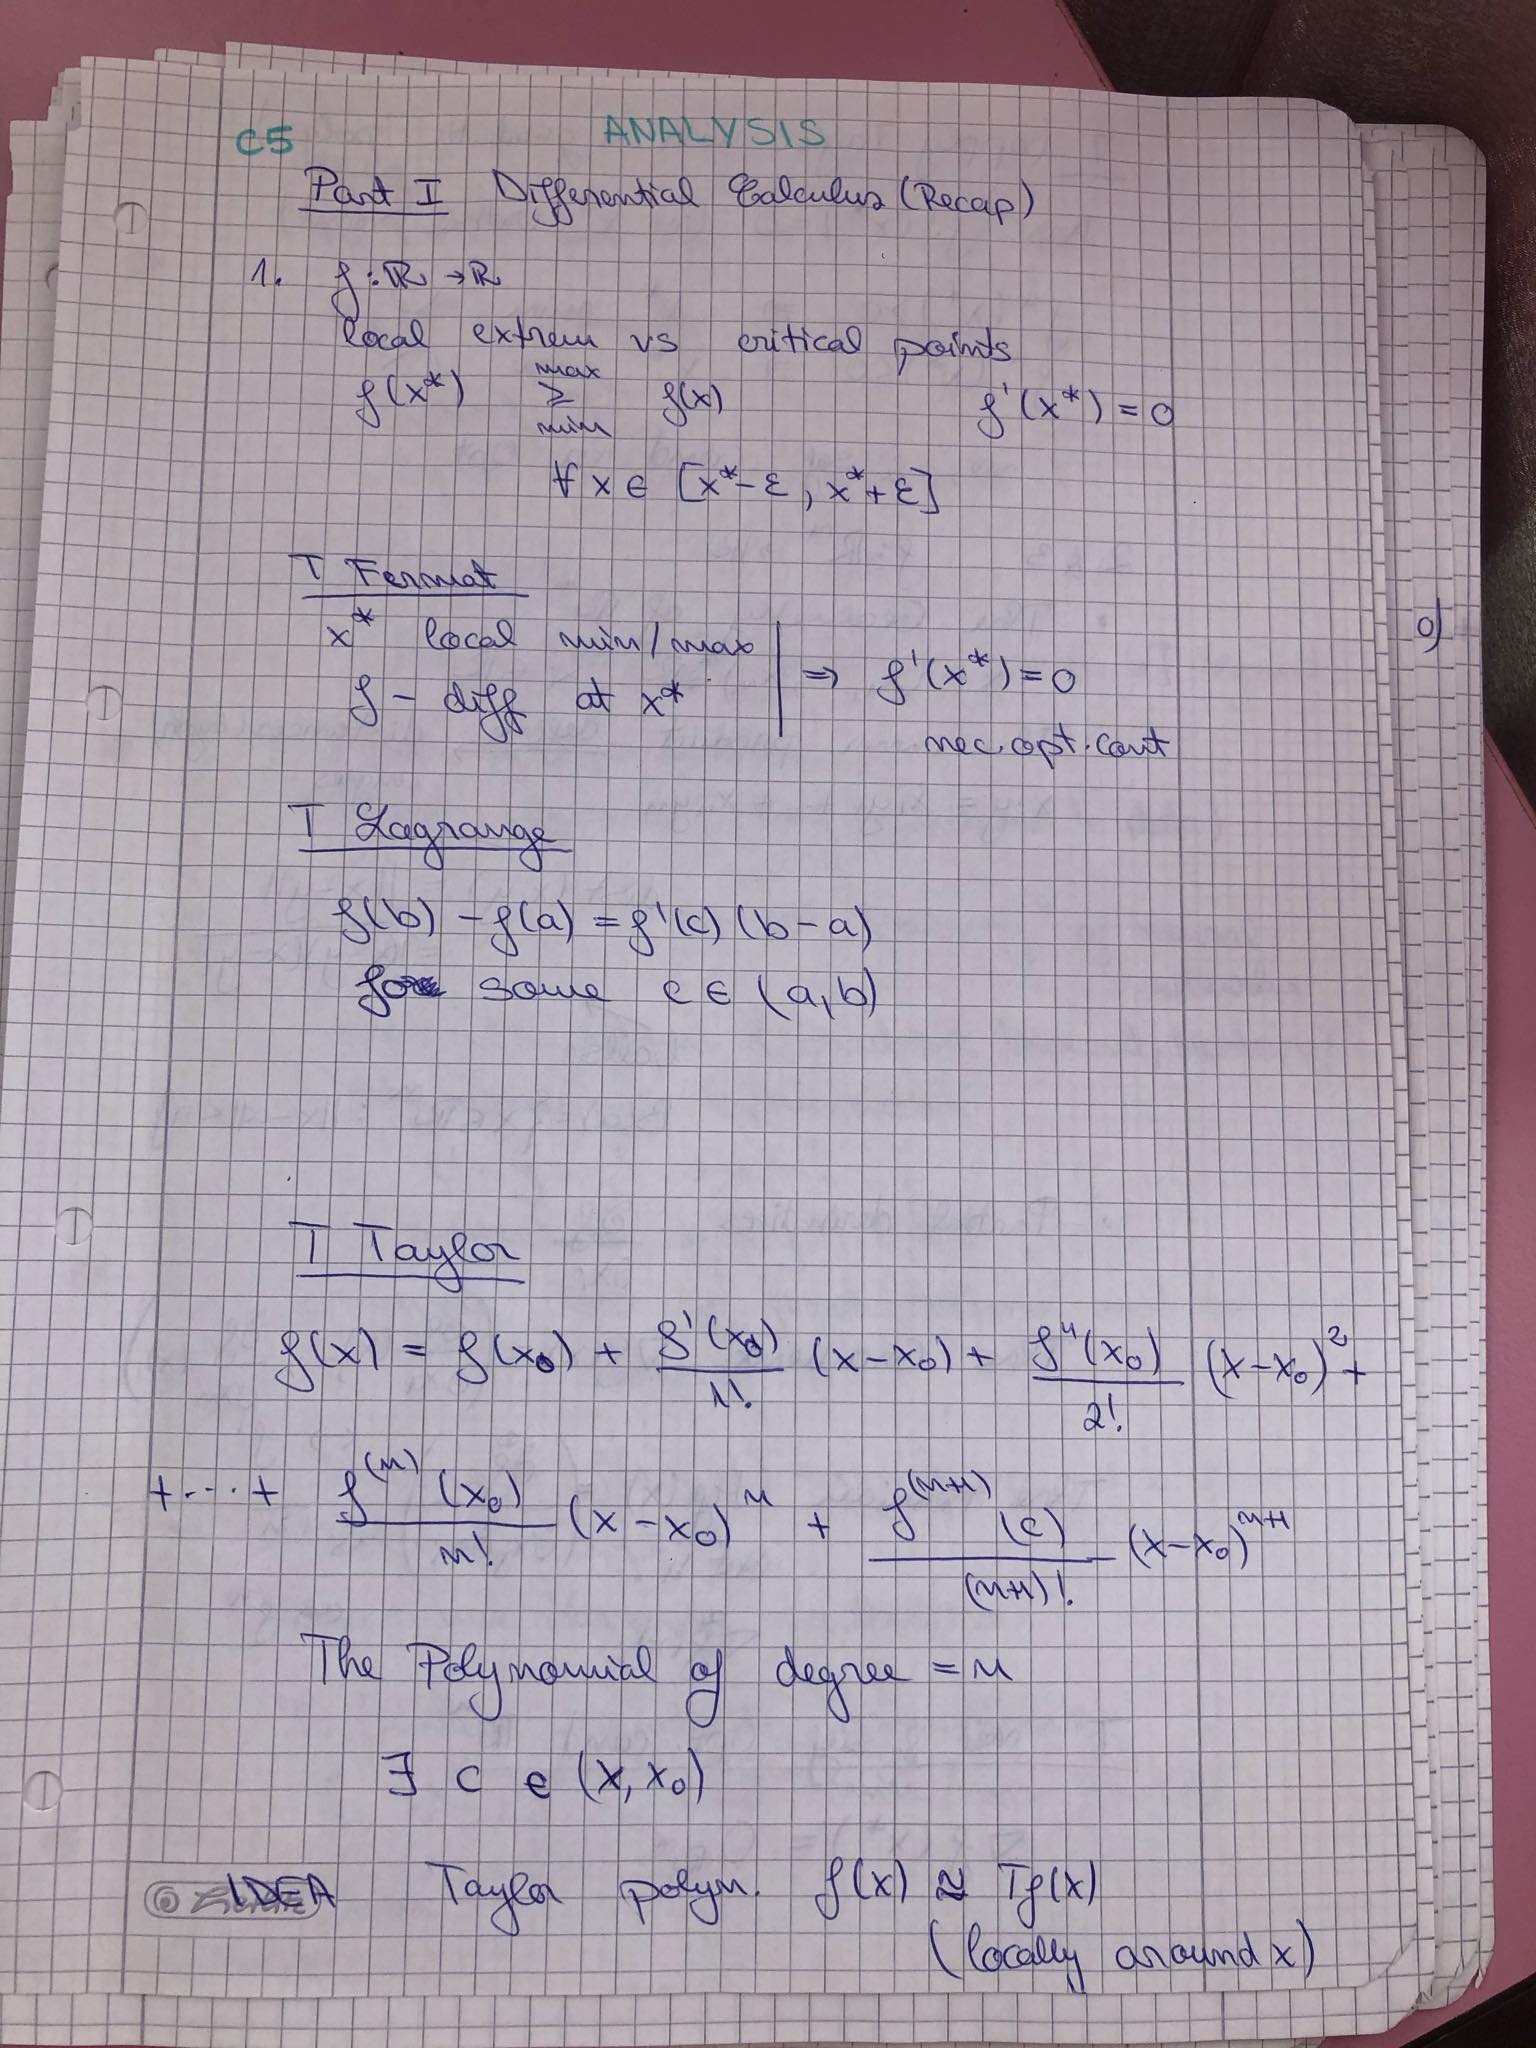 C5 ANALYSIS
Part I Differential Calculus (Recap)
1. f: ℝ → ℝ
local extrem vs critical points
max
f(x*) ≥ f(x) f'(x*) = 0
min
∀ x ∈ [x*-ε, x*+ε]
T Fermat
x* local min/max
f - diff at x* ⇒ f'(x*) = 0
nec. opt. cont
T Lagrange
f(b) - f(a) = f'(c) (b-a)
for some c ∈ (a,b)
T Taylor
f(x) = f(x₀) + f'(x₀)/1! (x-x₀) + f''(x₀)/2! (x-x₀)² +
+ ... + f⁽ⁿ⁾(x₀)/n! (x-x₀)ⁿ + f⁽ⁿ⁺¹⁾(c)/(n+1)! (x-x₀)ⁿ⁺¹
The Polynomial of degree = n
∃ c ∈ (x, x₀)
IDEA Taylor polym. f(x) ≈ Tf(x)
(locally around x)